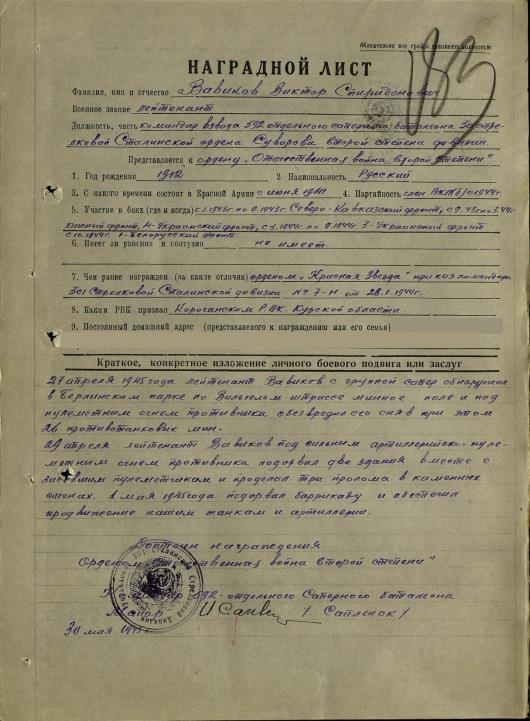 Обязательно все графы заполнять полностью
183
НАГРАДНОЙ ЛИСТ
Фамилия, имя и отчество Вавиков Виктор Спиридонович
Военное звание лейтенант
Должность, часть командир взвода 592 отдельного саперного баталиона 301 стре-
лковой Сталинской ордена Суворова второй степени дивизии.
Представляется к ордену „Отечественная война второй степени"
1. Год рождения 1912 2. Национальность Русский
3. С какого времени состоит в Красной Армии с июня 1941 4. Партийность член ВКП(б) с 1944г.
5. Участие в боях (где и когда) с 1.1943г по 9.1943г. Северо-Кавказский фронт, с 9.43г по 3.44г
Южный фронт, 4-Украинский фронт, с 5.1944г. по 9.1944г 3-Украинский фронт
с 10.1944г. 1-Белорусский фронт
6. Имеет ли ранения и контузии не имеет.
7. Чем ранее награжден (за какие отличия) орденом „Красная Звезда" приказ командира
301 Стрелковой Сталинской дивизии № 7-н от 28.1.1944г.
8. Каким РВК призван Корочанским РВК Курской области.
9. Постоянный домашний адрес (представляемого к награждению или его семьи)
Краткое, конкретное изложение личного боевого подвига или заслуг
27 апреля 1945 года лейтенант Вавиков с группой сапер обнаружил
в Берлинском парке по Вильгельм штрассе минное поле и под
пулеметным огнем противника обезвредил его сняв при этом
26 противотанковых мин.
29 апреля лейтенант Вавиков под сильным артиллерийско-пуле-
метным огнем противника подорвал два здания вместе с
засевшим пулеметчикам и проделал три пролома в каменных
стенах. 1 мая 1945 года подорвал баррикаду и обеспечил
продвижение нашим танкам и артиллерии.
Достоин награждения
Орденом „Отечественная война второй степени"
592-отдельного Саперного баталиона
Майор / Сапленок /
30 мая 1945г.